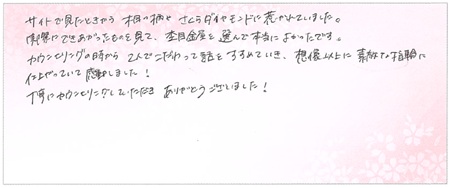 サイトで見たときから 木目の柄や さくらダイヤモンドに惹かれていました。
実際にできあがったものを見て、杢目金屋を選んで本当によかったです。
カウンセリングの時から 2人でこだわって話をすすめていき、想像以上に素敵な指輪に
仕上がっていて感動しました！
丁寧にカウンセリングしていただき ありがとうございました！